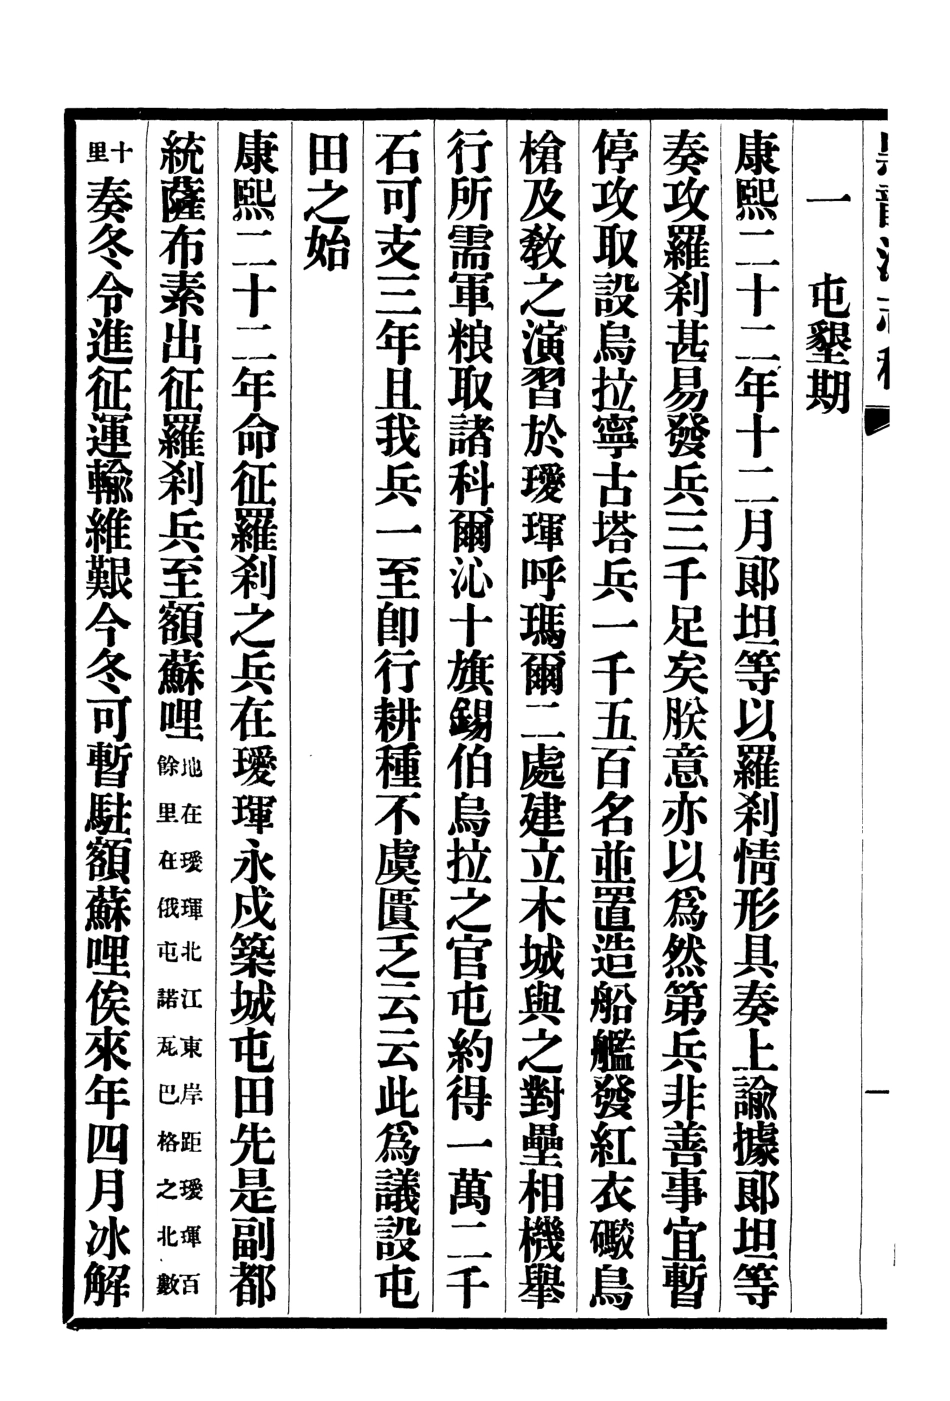 一　屯墾期
康熙二十二年十二月郎坦等以羅刹情形具奏上諭據郎坦等
奏攻羅刹甚易發兵三千足矣朕意亦以爲然第兵非善事宜暫
停攻取設烏拉寧古塔兵一千五百名並置造船艦發紅衣礮烏
槍及教之演習於璦琿呼瑪爾二處建立木城與之對壘相機舉
行所需軍粮取諸科爾沁十旗錫伯烏拉之官屯約得一萬二千
石可支三年且我兵一至卽行耕種不虞匱乏云云此爲議設屯
田之始
康熙二十二年命征羅刹之兵在璦琿永戍築城屯田先是副都
統薩布素出征羅刹兵至額蘇哩地在璦琿北江東岸距璦琿百
餘里在俄屯諾瓦巴格之北數
十里奏冬令進征運輸維艱今冬可暫駐額蘇哩俟來年四月冰解
一